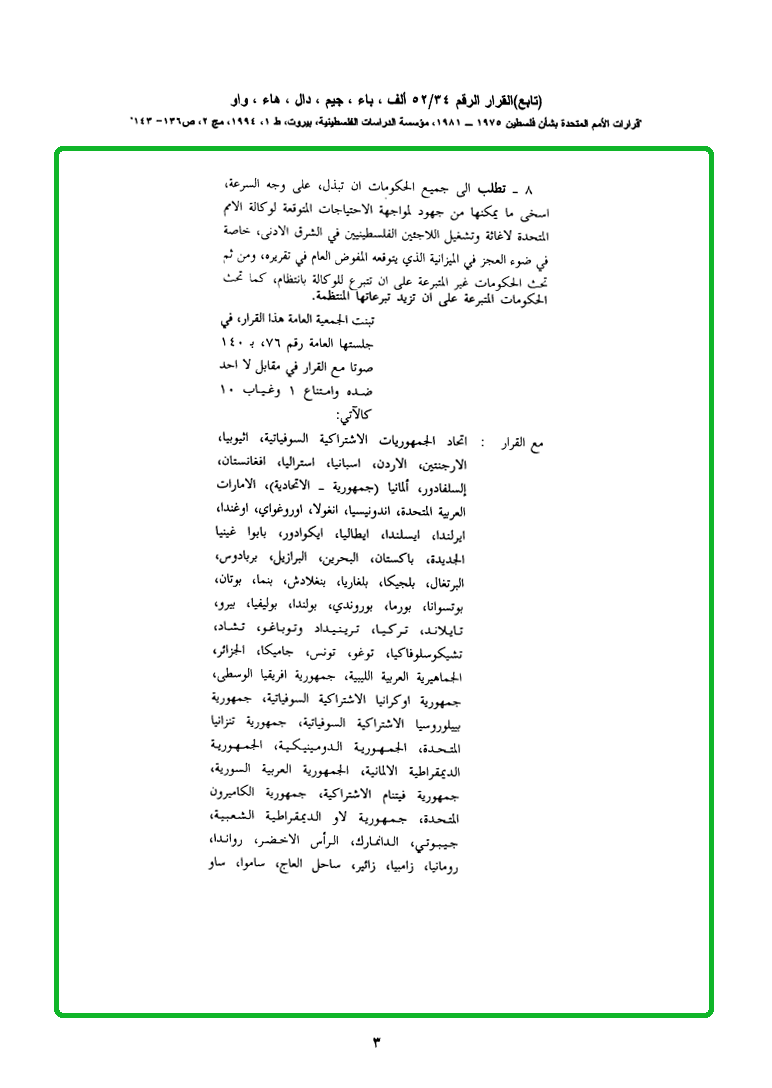 (تابع)القرار الرقم ٥٢/٣٤ ألف ، باء ، جيم ، دال ، هاء ، واو
"قرارات الأمم المتحدة بشأن فلسطين ١٩٧٥ ــ ١٩٨١، مؤسسة الدراسات الفلسطينية، بيروت، ط ١، ١٩٩٤، مج ٢، ص١٣٦- ١٤٣"
٨ ـ تطلب الى جميع الحكومات ان تبذل، على وجه السرعة،
اسخى ما يمكنها من جهود لمواجهة الاحتياجات المتوقعة لوكالة الامم
المتحدة لاغاثة وتشغيل اللاجئين الفلسطينيين في الشرق الادنى، خاصة
في ضوء العجز في الميزانية الذي يتوقعه المفوض العام في تقريره، ومن ثم
تحث الحكومات غير المتبرعة على ان تتبرع للوكالة بانتظام، كما تحث
الحكومات المتبرعة على ان تزيد تبرعاتها المنتظمة.
تبنت الجمعية العامة هذا القرار، في
جلستها العامة رقم ٧٦، بـ ١٤٠
صوتا مع القرار في مقابل لا احد
ضده وامتناع ١ وغياب ١٠
كالآتي:
مع القرار : اتحاد الجمهوريات الاشتراكية السوفياتية، اثيوبيا،
الارجنتين، الاردن، اسبانيا، استراليا، افغانستان،
إلسلفادور، ألمانيا (جمهورية ـ الاتحادية)، الامارات
العربية المتحدة، اندونيسيا، انغولا، اوروغواي، اوغندا،
ايرلندا، ايسلندا، ايطاليا، ايكوادور، بابوا غينيا
الجديدة، باكستان، البحرين، البرازيل، بربادوس،
البرتغال، بلجيكا، بلغاريا، بنغلادش، بنما، بوتان،
بوتسوانا، بورما، بوروندي، بولندا، بوليفيا، بيرو،
تايلاند، تركيا، ترينيداد وتوباغو، تشاد،
تشيكوسلوفاكيا، توغو، تونس، جاميكا، الجزائر،
الجماهيرية العربية الليبية، جمهورية افريقيا الوسطى،
جمهورية اوكرانيا الاشتراكية السوفياتية، جمهورية
بييلوروسيا الاشتراكية السوفياتية، جمهورية تنزانيا
المتحدة، الجمهورية الدومينيكية، الجمهورية
الديمقراطية الالمانية، الجمهورية العربية السورية،
جمهورية فيتنام الاشتراكية، جمهورية الكاميرون
المتحدة، جمهورية لاو الديمقراطية الشعبية،
جيبوتي، الدانمارك، الرأس الاخضر، رواندا،
رومانيا، زامبيا، زائير، ساحل العاج، ساموا، ساو
٣